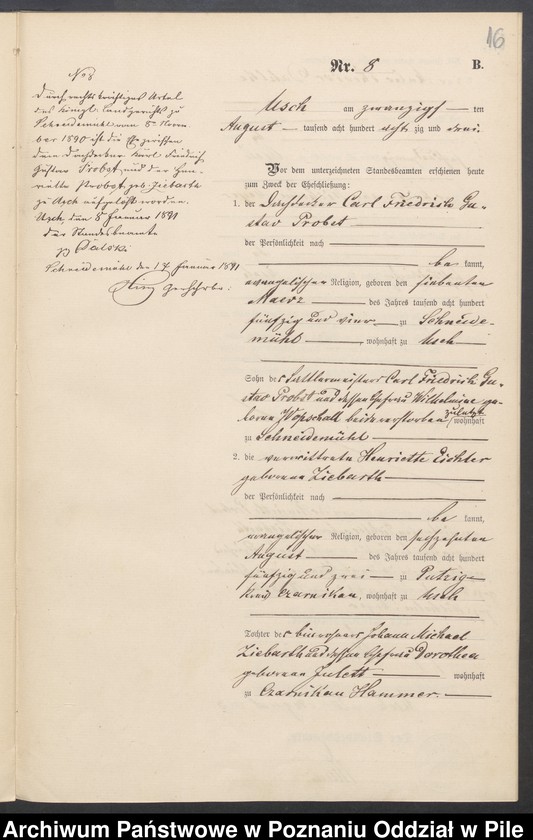 16
Nr. 8 B.
No 8
Durch rechtskräftiges Urteil
des Königl. Landgerichts zu
Schneidemühl vom 8 Novem-
ber 1890 ist die Ehe zwischen
dem Dachdecker Karl Friedrich
Gustav Probst und der Hen-
riette Probst geb. Ziebarth
zu Usch aufgelöst worden.
Usch, den 8 Januar 1891
der Standesbeamte
Schneidemühl den 17 Januar 1891
Usch am zwanzigs ten
August tausend acht hundert achtzig und drei.
Vor dem unterzeichneten Standesbeamten erschienen heute
zum Zweck der Eheschließung:
1. der Dachdecker Carl Friedrich Gu-
stav Probst
der Persönlichkeit nach
be kannt,
evangelischer Religion, geboren den siebenten
Maerz des Jahres tausend acht hundert
fünfzig und vier zu Schneide-
mühl, wohnhaft zu Usch
Sohn des Sattlermeisters Carl Friedrich Gu-
stav Probst und dessen Ehefrau Wilhelmine ge-
borene beide verstorben, zuletzt wohnhaft
zu Schneidemühl
2. die verwittwete Henriette Richter
geborene Ziebarth
der Persönlichkeit nach
be kannt,
evangelischer Religion, geboren den sechzehnten
August des Jahres tausend acht hundert
fünfzig und zwei zu Putzig
Kreis Czarnikau, wohnhaft zu Usch
Tochter des Johann Michael
Ziebarth und dessen Ehefrau Dorothea
geborene wohnhaft
zu Czarnikau Hammer.
Archiwum Państwowe w Poznaniu Oddział w Pile